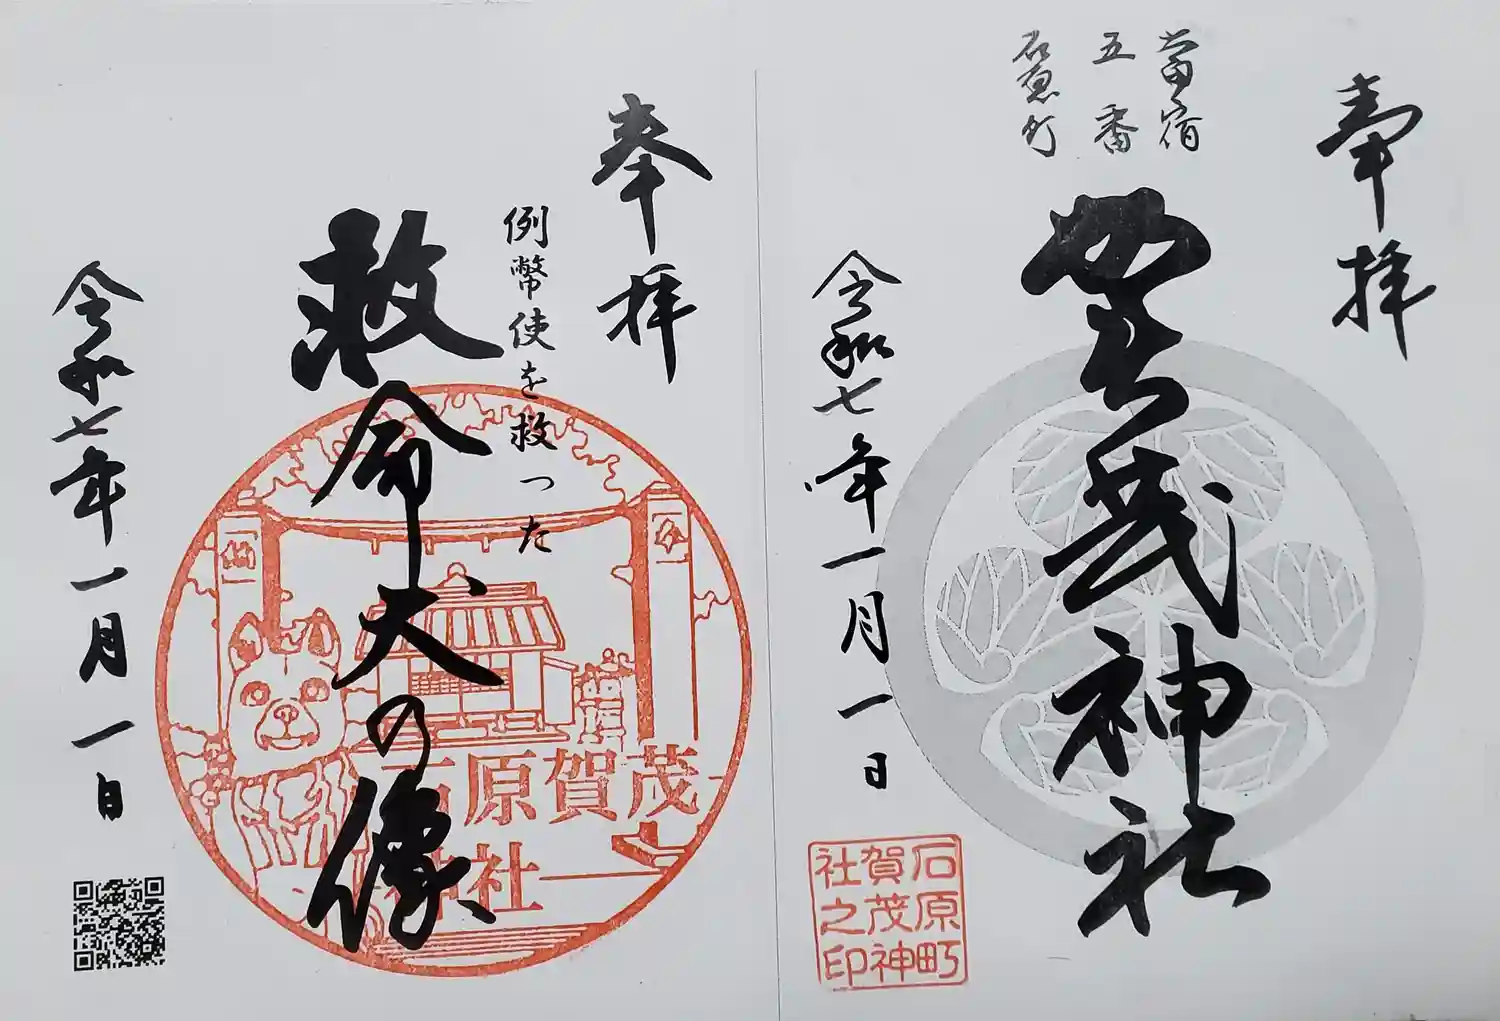 奉拝
當宿
五番
石原町
賀茂神社
令和七年一月一日
石原町
賀茂神
社之印
奉拝
例幣使を救った
救命犬の像
令和七年一月一日
石原賀茂
神社